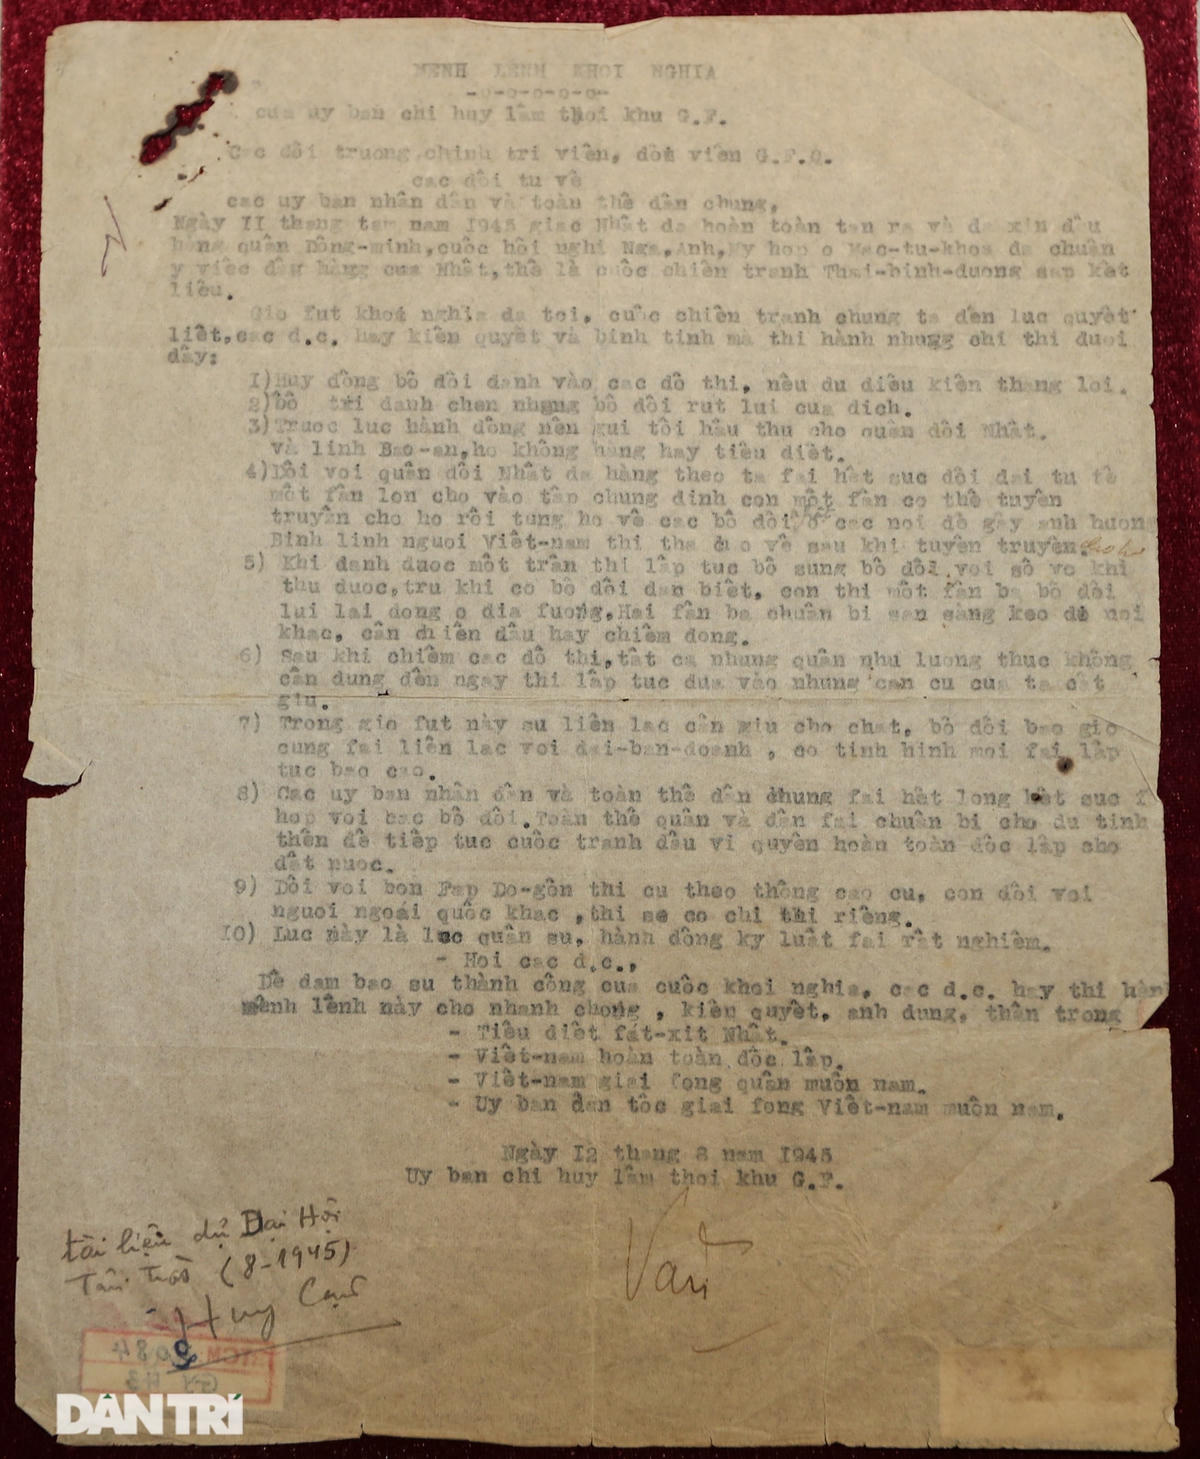 MENH LENH KHOI NGHIA
-o-o-o-o-o-
cua uy ban chi huy lâm thoi khu G.F.
Cac dôi truong,chinh tri viên, dôi viên G.F.Q.
cac dôi tu vê
cac uy ban nhân dân và toàn thê dân chung,
Ngày II thang tam nam 1945 giac Nhât da hoàn toàn tan ra và da xin dâu
hàng quân Dông-minh,cuôc hôi nghi Nga,Anh,My hop o Mac-tu-khoa da chuân
y viêc dâu hàng cua Nhât,thê là cuôc chiên tranh Thai-binh-duong sap kêt
liêu.
Gio fut khoi nghia da toi, cuôc chiên tranh chung ta dên luc quyêt
liêt,cac d.c. hay kiên quyêt và binh tinh mà thi hành nhung chi thi duoi
dây:
I)Huy dông bô dôi danh vào cac dô thi, nêu du diêu kiên thang loi.
2)bô tri danh chen nhung bô dôi rut lui cua dich.
3)Truoc luc hành dông nên gui tôi hâu thu cho quân dôi Nhât.
và linh Bao-an,ho không hàng hay tiêu diêt.
4)Dôi voi quân dôi Nhât da hàng theo ta fai hêt suc dôi dai tu tê
môt fân lon cho vào tâp chung dinh con môt fân co thê tuyên
truyên cho ho rôi tung ho vê cac bô dôi o cac noi dê gây anh huong
Binh linh nguoi Viêt-nam thi tha cho vê sau khi tuyên truyên. cho ho
5) Khi danh duoc môt trân thi lâp tuc bô sung bô dôi voi sô vo khi
thu duoc,tru khi co bô dôi dac biêt, con thi môt fân ba bô dôi
lui lai dong o dia fuong,Hai fân ba chuân bi san sàng keo dê noi
khac, cân chiên dâu hay chiêm dong.
6) Sau khi chiêm cac dô thi,tât ca nhung quân nhu luong thuc không
cân dung dên ngay thi lâp tuc dua vào nhung can cu cua ta cât
giu.
7) Trong gio fut này su liên lac cân giu cho chat, bô dôi bao gio
cung fai liên lac voi dai-ban-doanh , co tinh hinh moi fai lâp
tuc bao cao.
8) Cac uy ban nhân dân và toàn thê dân chung fai hêt long hêt suc f
hop voi cac bô dôi.Toàn thê quân và dân fai chuân bi cho du tinh
thân dê tiêp tuc cuôc tranh dâu vi quyên hoàn toàn dôc lâp cho
dât nuoc.
9) Dôi voi bon Fap Do-gôn thi cu theo thông cao cu, con dôi voi
nguoi ngoai quôc khac ,thi se co chi thi riêng.
10) Luc này là luc quân su, hành dông ky luât fai rât nghiêm.
- Hoi cac d.c.,
Dê dam bao su thành công cua cuôc khoi nghia, cac d.c. hay thi hành
mênh lênh này cho nhanh chong , kiên quyêt, anh dung, thân trong
- Tiêu diêt fat-xit Nhât.
- Viêt-nam hoàn toàn dôc lâp.
- Viêt-nam giai fong quân muôn nam.
- Uy ban dân tôc giai fong Viêt-nam muôn nam.
Ngày 12 thang 8 nam 1945
Uy ban chi huy lâm thoi khu G.F.
Văn
tài liệu dự Đại Hội
Tân Trào (8-1945)
- Huy Cận
DÂN TRÍ